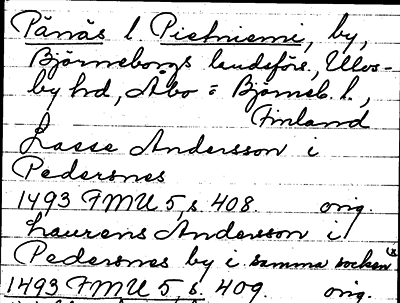 Pänäs l. Pietniemi, by,
Björneborgs landsförs., Ulvs-
by hd, Åbo = Björneb. l.,
Finland
Lasse Andersson i
Pedersnes
1493 FMU 5, s. 408. orig.
Laurens Andersson i
Pedersnes by i samma socken
1493 FMU 5, s. 409. orig.